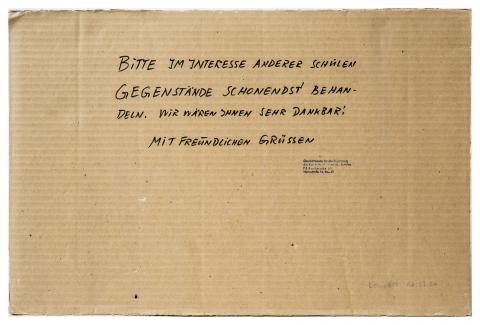 BITTE IM INTERESSE ANDERER SCHÜLEN
GEGENSTÄNDE SCHONENDST BEHAN-
DELN. WIR WÄREN IHNEN SEHR DANKBAR!
MIT FREUNDLICHEN GRÜSSEN